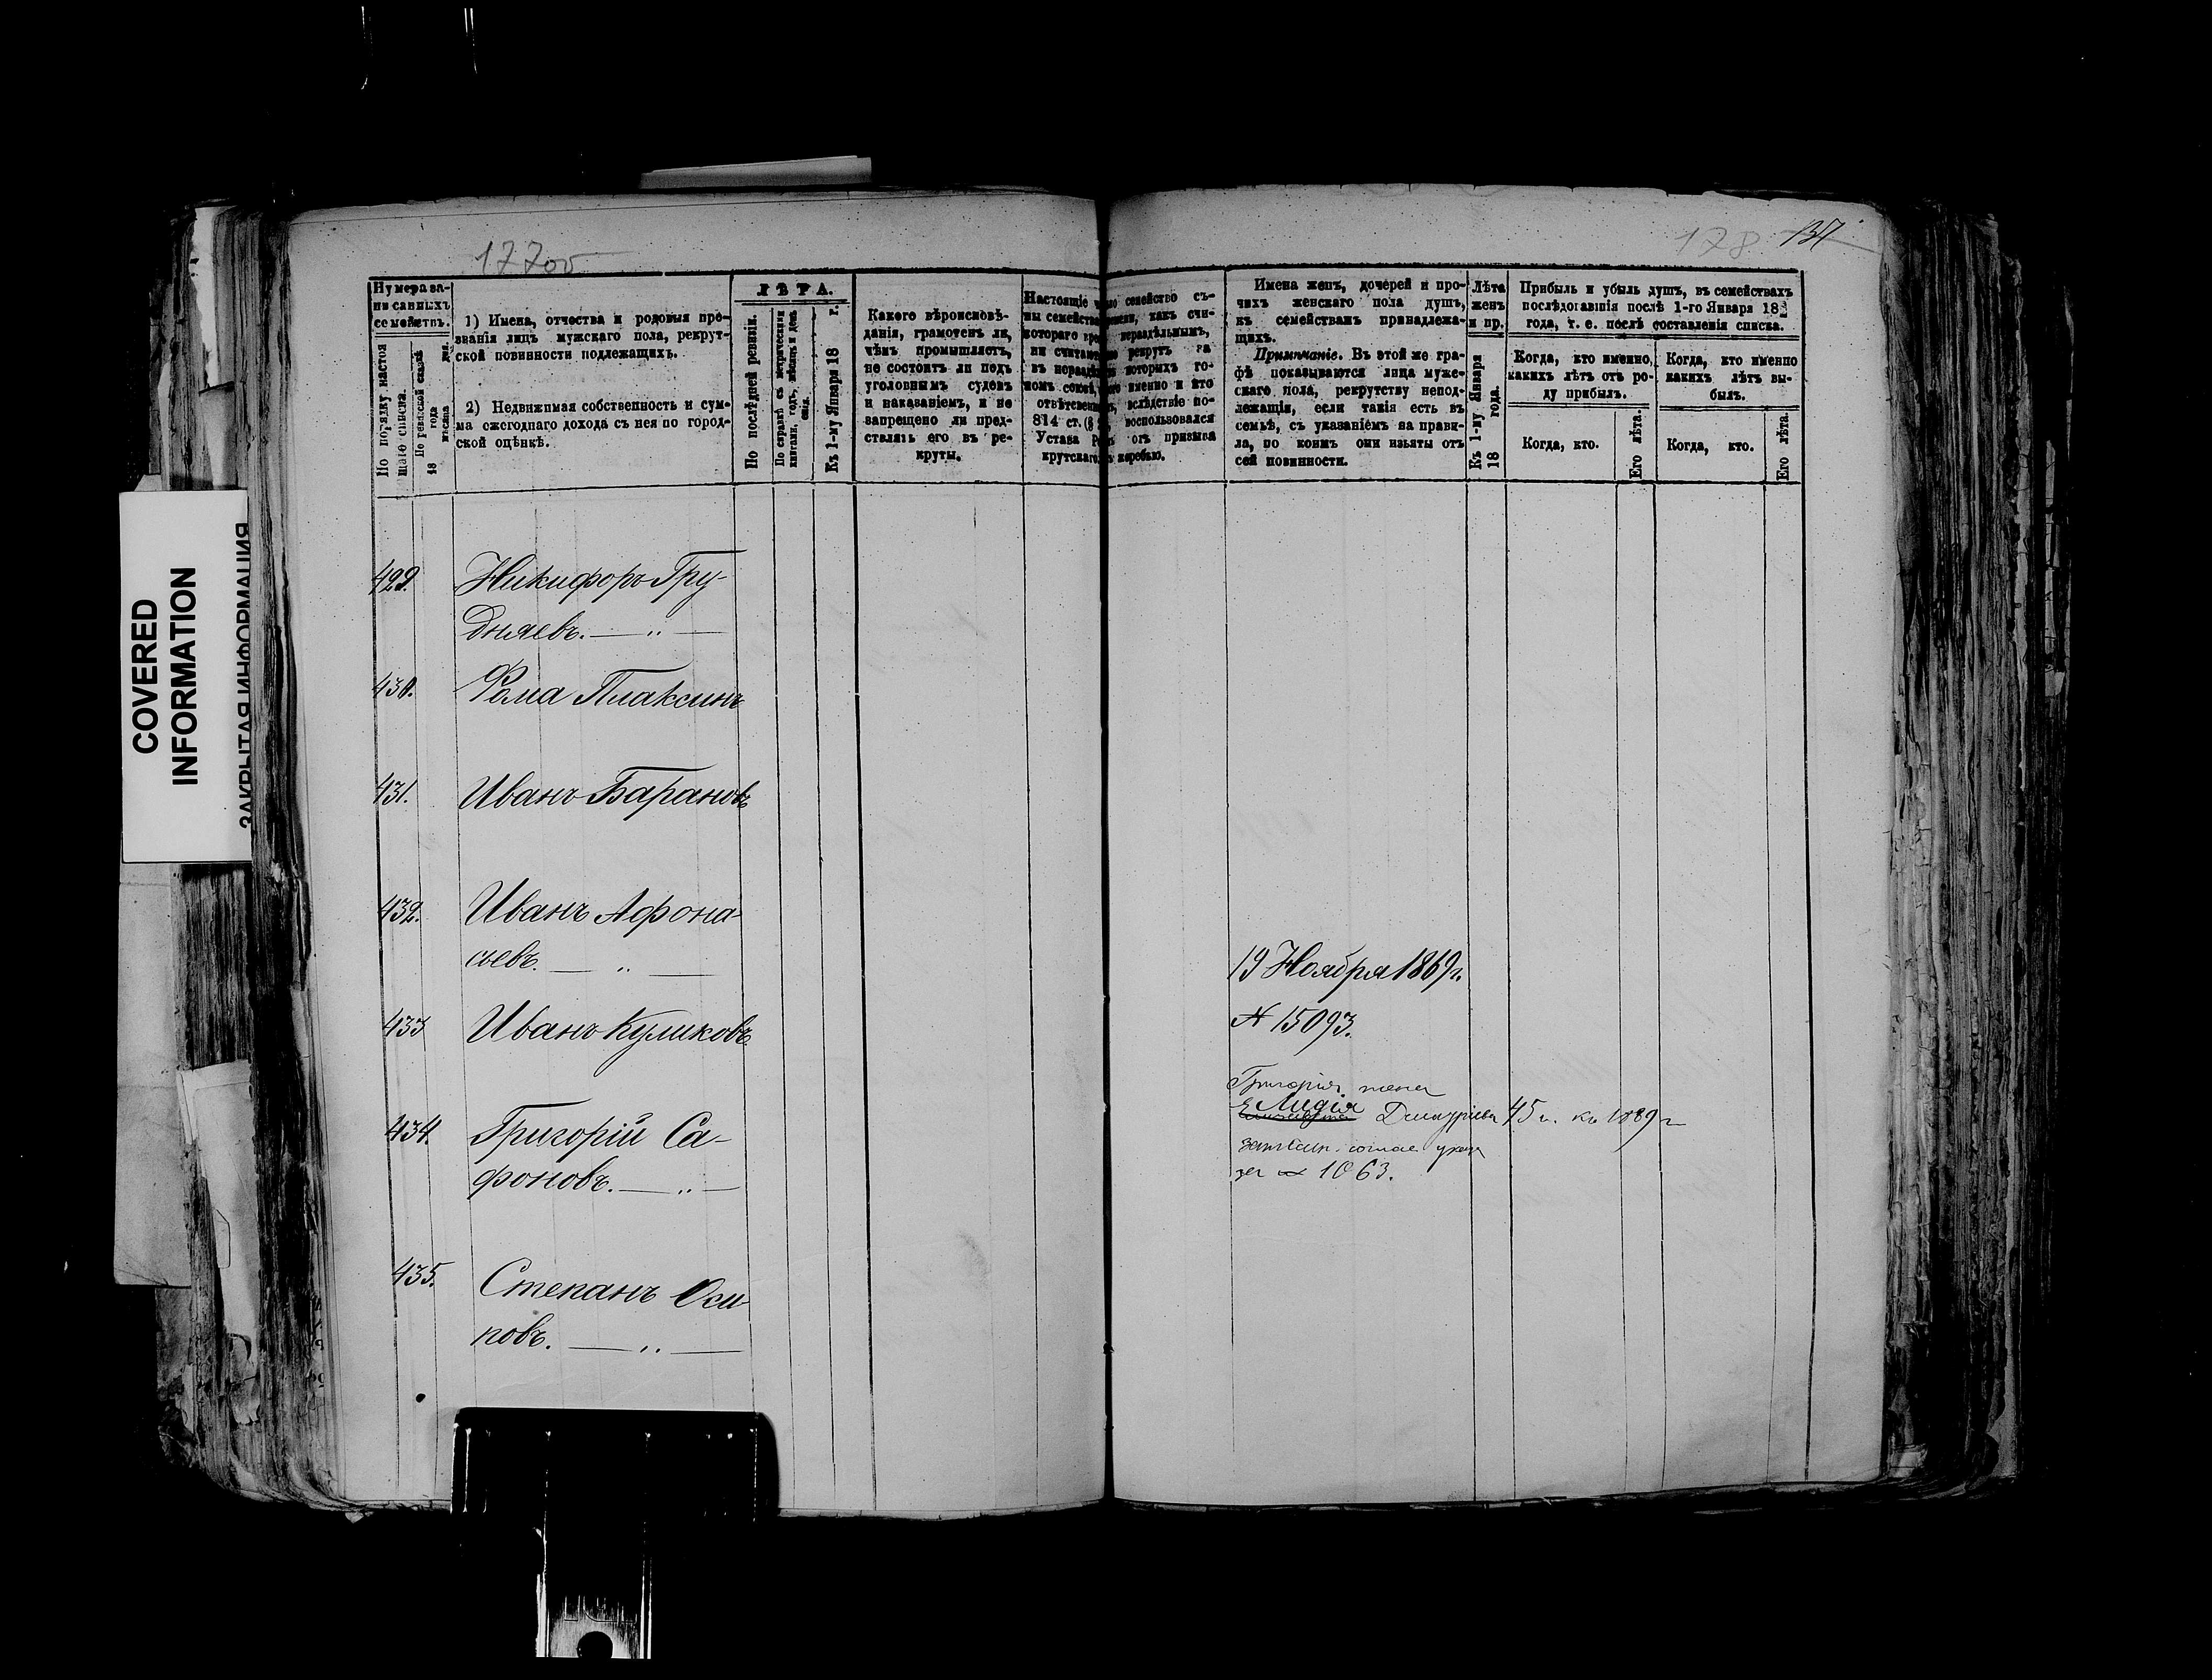 COVERED
INFORMATION
ЗАКРЫТАЯ ИНФОРМАЦИЯ
177об
178 137
Нумера за-
писанныхъ
семействъ.
По порядку настоя
щаго списка.
По ревизской сказкѣ
18 года
мѣсяца дня.
1) Имена, отчества и родовыя про-
званія лицъ мужскаго пола, рекрут-
ской повинности подлежащихъ.
2) Недвижимая собственность и сум-
ма ежегоднаго дохода съ нея по город-
ской оцѣнкѣ.
ЛѢТА.
По послѣдней ревизіи.
По справкѣ съ метрическими
книгами, годъ, мѣсяцъ и день
Къ 1-му Января 18 г.
Какого вѣроисповѣ-
данія, грамотенъ ли,
чѣмъ промышляетъ,
не состоитъ ли подъ
уголовнымъ судомъ
и наказаніемъ, и не
запрещено ли пред-
ставлять его въ ре-
круты.
Настоящіе семейство съ-
ны семейства какъ счи-
котораго нераздѣльнымъ,
ни считаются рекрутъ за
въ нераздѣль которыхъ го-
номъ союзѣ именно и кто
отвѣтствен вслѣдствіе по-
814 ст. воспользовался
Устава Ре отъ призыва
крутскаго. жеребью.
Имена женъ, дочерей и про-
чихъ женскаго пола душъ,
къ семействамъ принадлежа-
щихъ.
Примѣчаніе. Въ этой же гра-
фѣ показываются лица муже-
скаго пола, рекрутству непод-
лежащія, если такія есть въ
семьѣ, съ указаніемъ на прави-
ла, по коимъ они изъяты отъ
сей повинности.
Лѣта
женъ
и пр.
Къ 1-му Января
18 года.
Прибыль и убыль душъ, въ семействахъ
послѣдовавшія послѣ 1-го Января 18
года, т. е. послѣ составленія списка.
Когда, кто именно,
какихъ лѣтъ отъ ро-
ду прибылъ.
Когда, кто именно
какихъ лѣтъ вы-
былъ.
Когда, кто.
Его лѣта.
Когда, кто.
Его лѣта.
429. Никифоръ Гру-
дняевъ. — „ —
430. Фома Плаксинъ
431. Иванъ Барановъ
432. Иванъ Афона-
сьевъ. — „ —
433 Иванъ Куликовъ.
434. Григорій Са-
фоновъ. — „ —
435. Степанъ Оси-
повъ. — „ —
19 Ноября 1869 г.
№ 15093.
Григорія жена
Лидія Дмитріева 45 л. къ 1889 г
за № 1063.